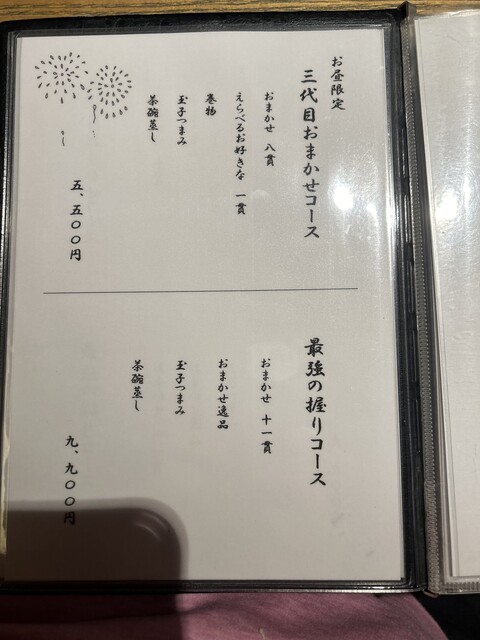 お昼限定
三代目おまかせコース
おまかせ 八貫
えらべるお好きな 一貫
巻物
玉子つまみ
茶碗蒸し
五、五〇〇円
最強の握りコース
おまかせ 十一貫
おまかせ逸品
玉子つまみ
茶碗蒸し
九、九〇〇円